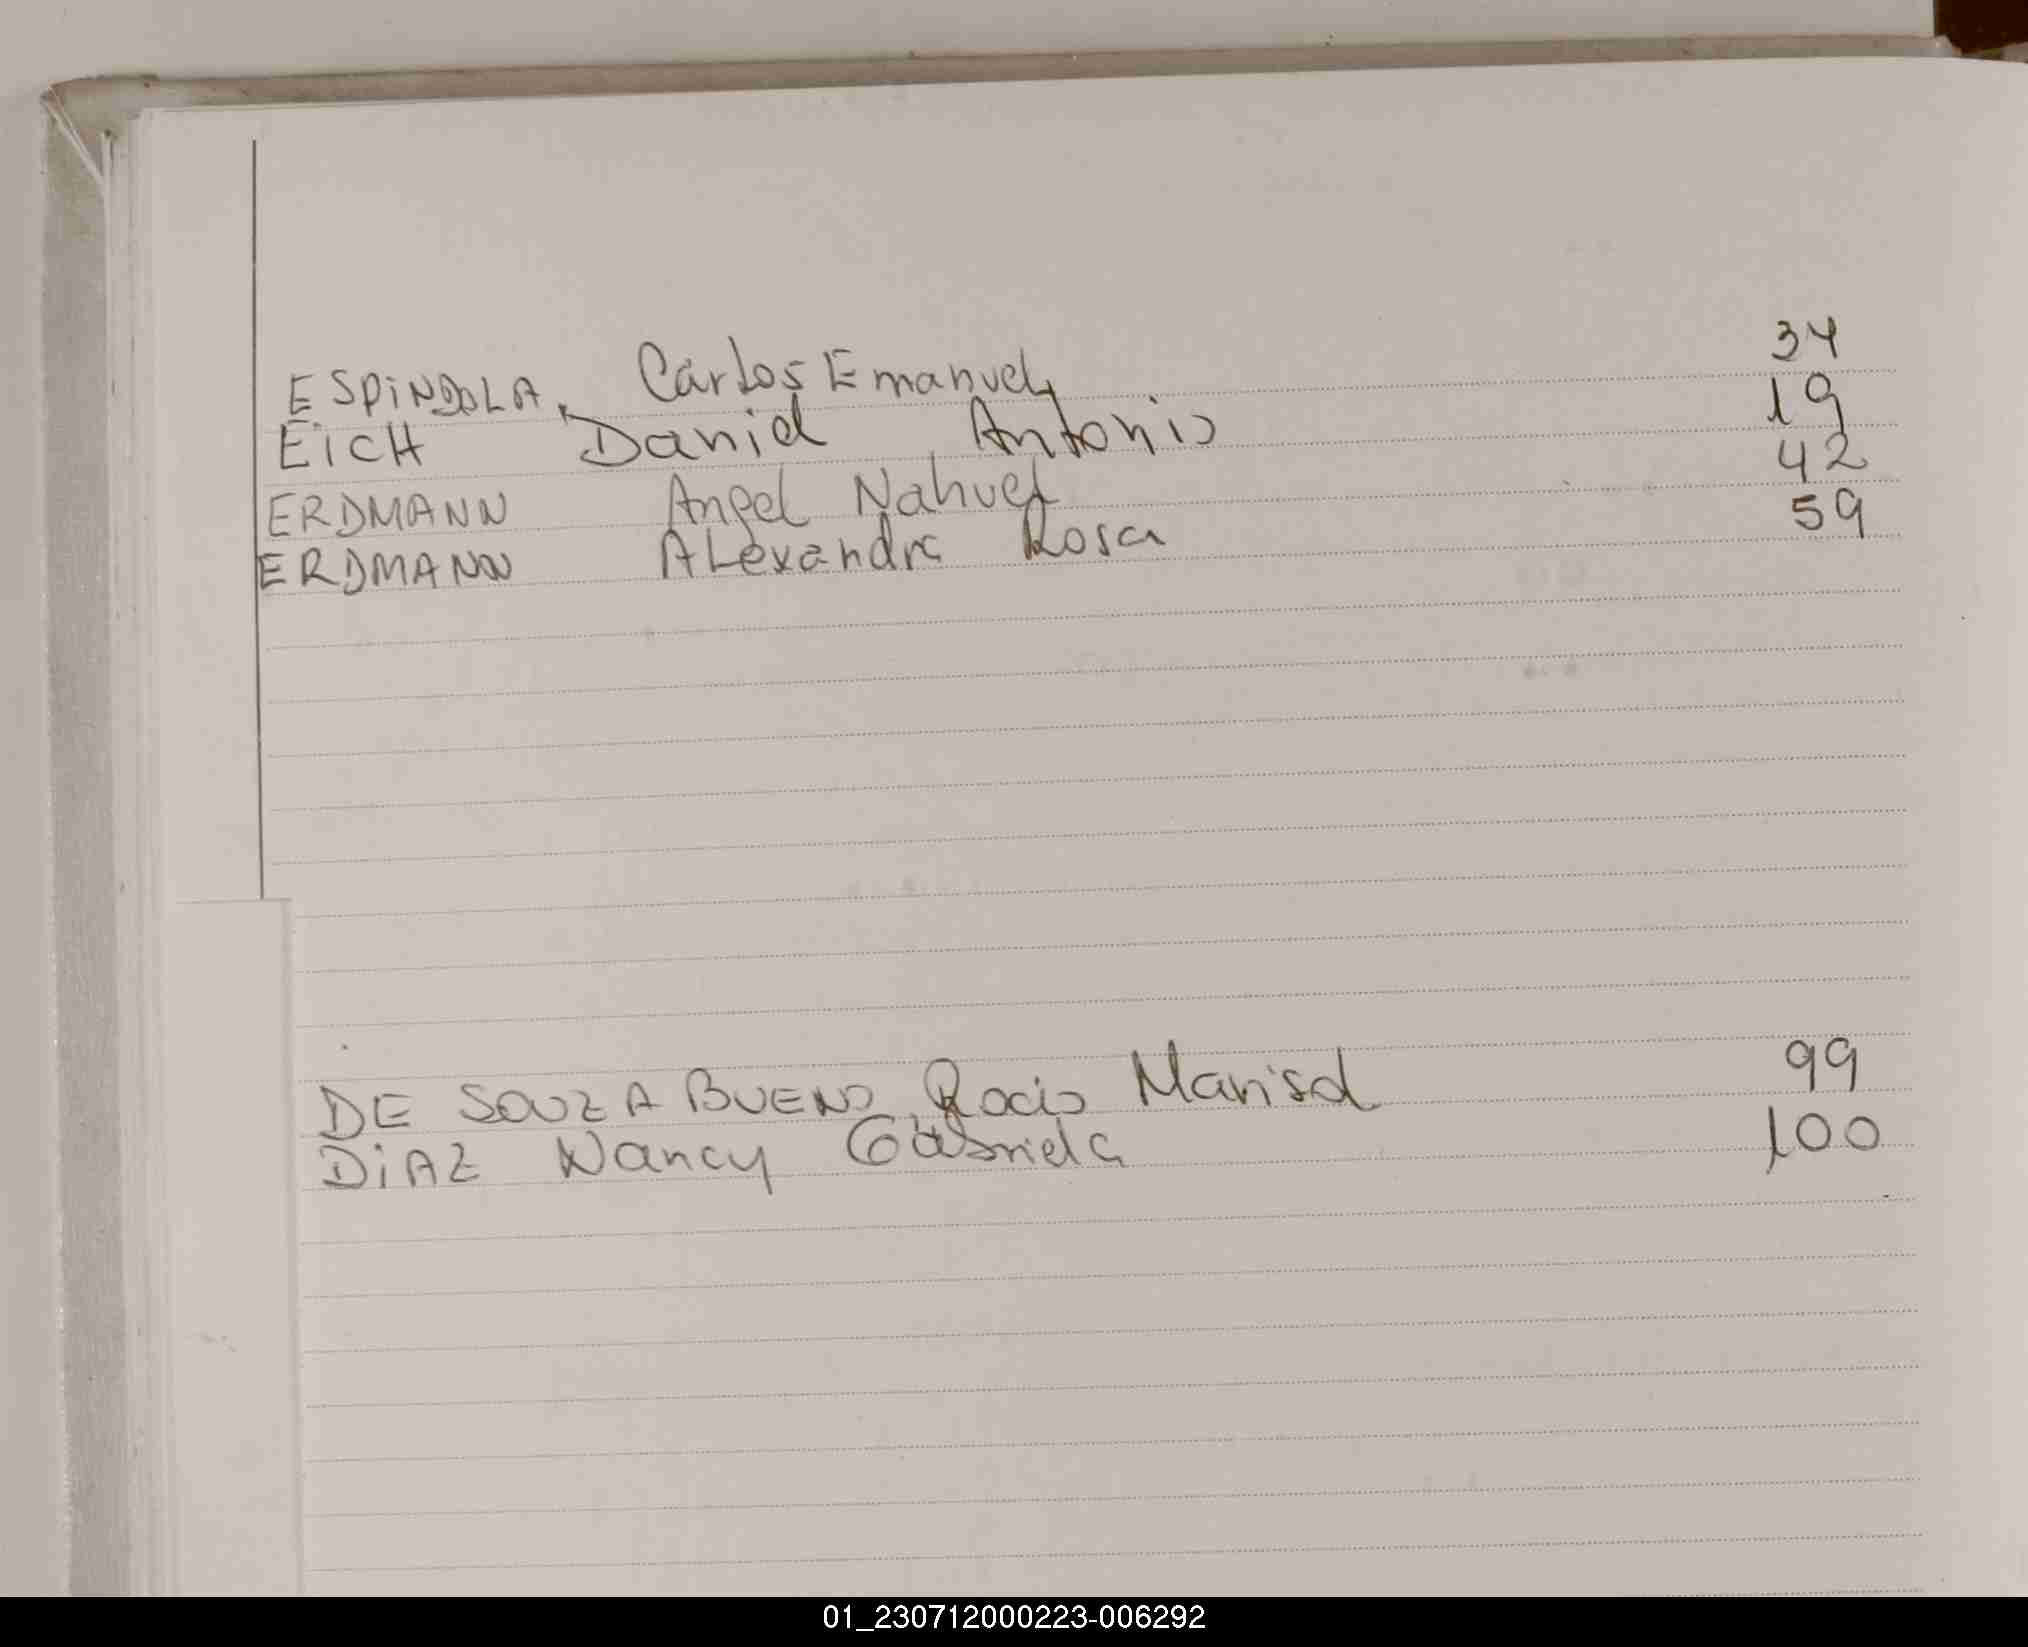 ESPINDOLA, Carlos Emanuel 34
EICH Daniel Antonio 19
ERDMANN Angel Nahuel 42
ERDMANN ALexandra Rosa 59
DE SOUZA BUENO, Rocio Marisol 99
DIAZ Nancy Gabriela 100
01_230712000223-006292